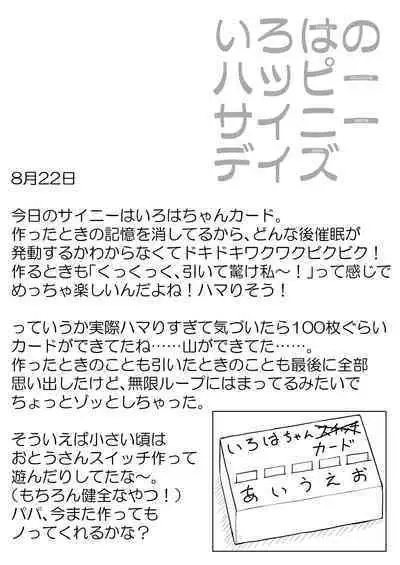 いろはの
ハッピー
サイニー
デイズ
8月22日
今日のサイニーはいろはちゃんカード。
作ったときの記憶を消してるから、どんな後催眠が
発動するかわからなくてドキドキワクワクビクビク!
作るときも「くっくっく、引いて驚け私〜!」って感じで
めっちゃ楽しいんだよね!ハマりそう!
っていうか実際ハマりすぎて気づいたら100枚ぐらい
カードができてたね……山ができてた……。
作ったときのことも引いたときのことも最後に全部
思い出したけど、無限ループにはまってるみたいで
ちょっとゾッとしちゃった。
そういえば小さい頃は
おとうさんスイッチ作って
遊んだりしてたな〜。
(もちろん健全なやつ!)
パパ、今また作っても
ノッてくれるかな?
いろはちゃんスイッチ
カード
あいうえお